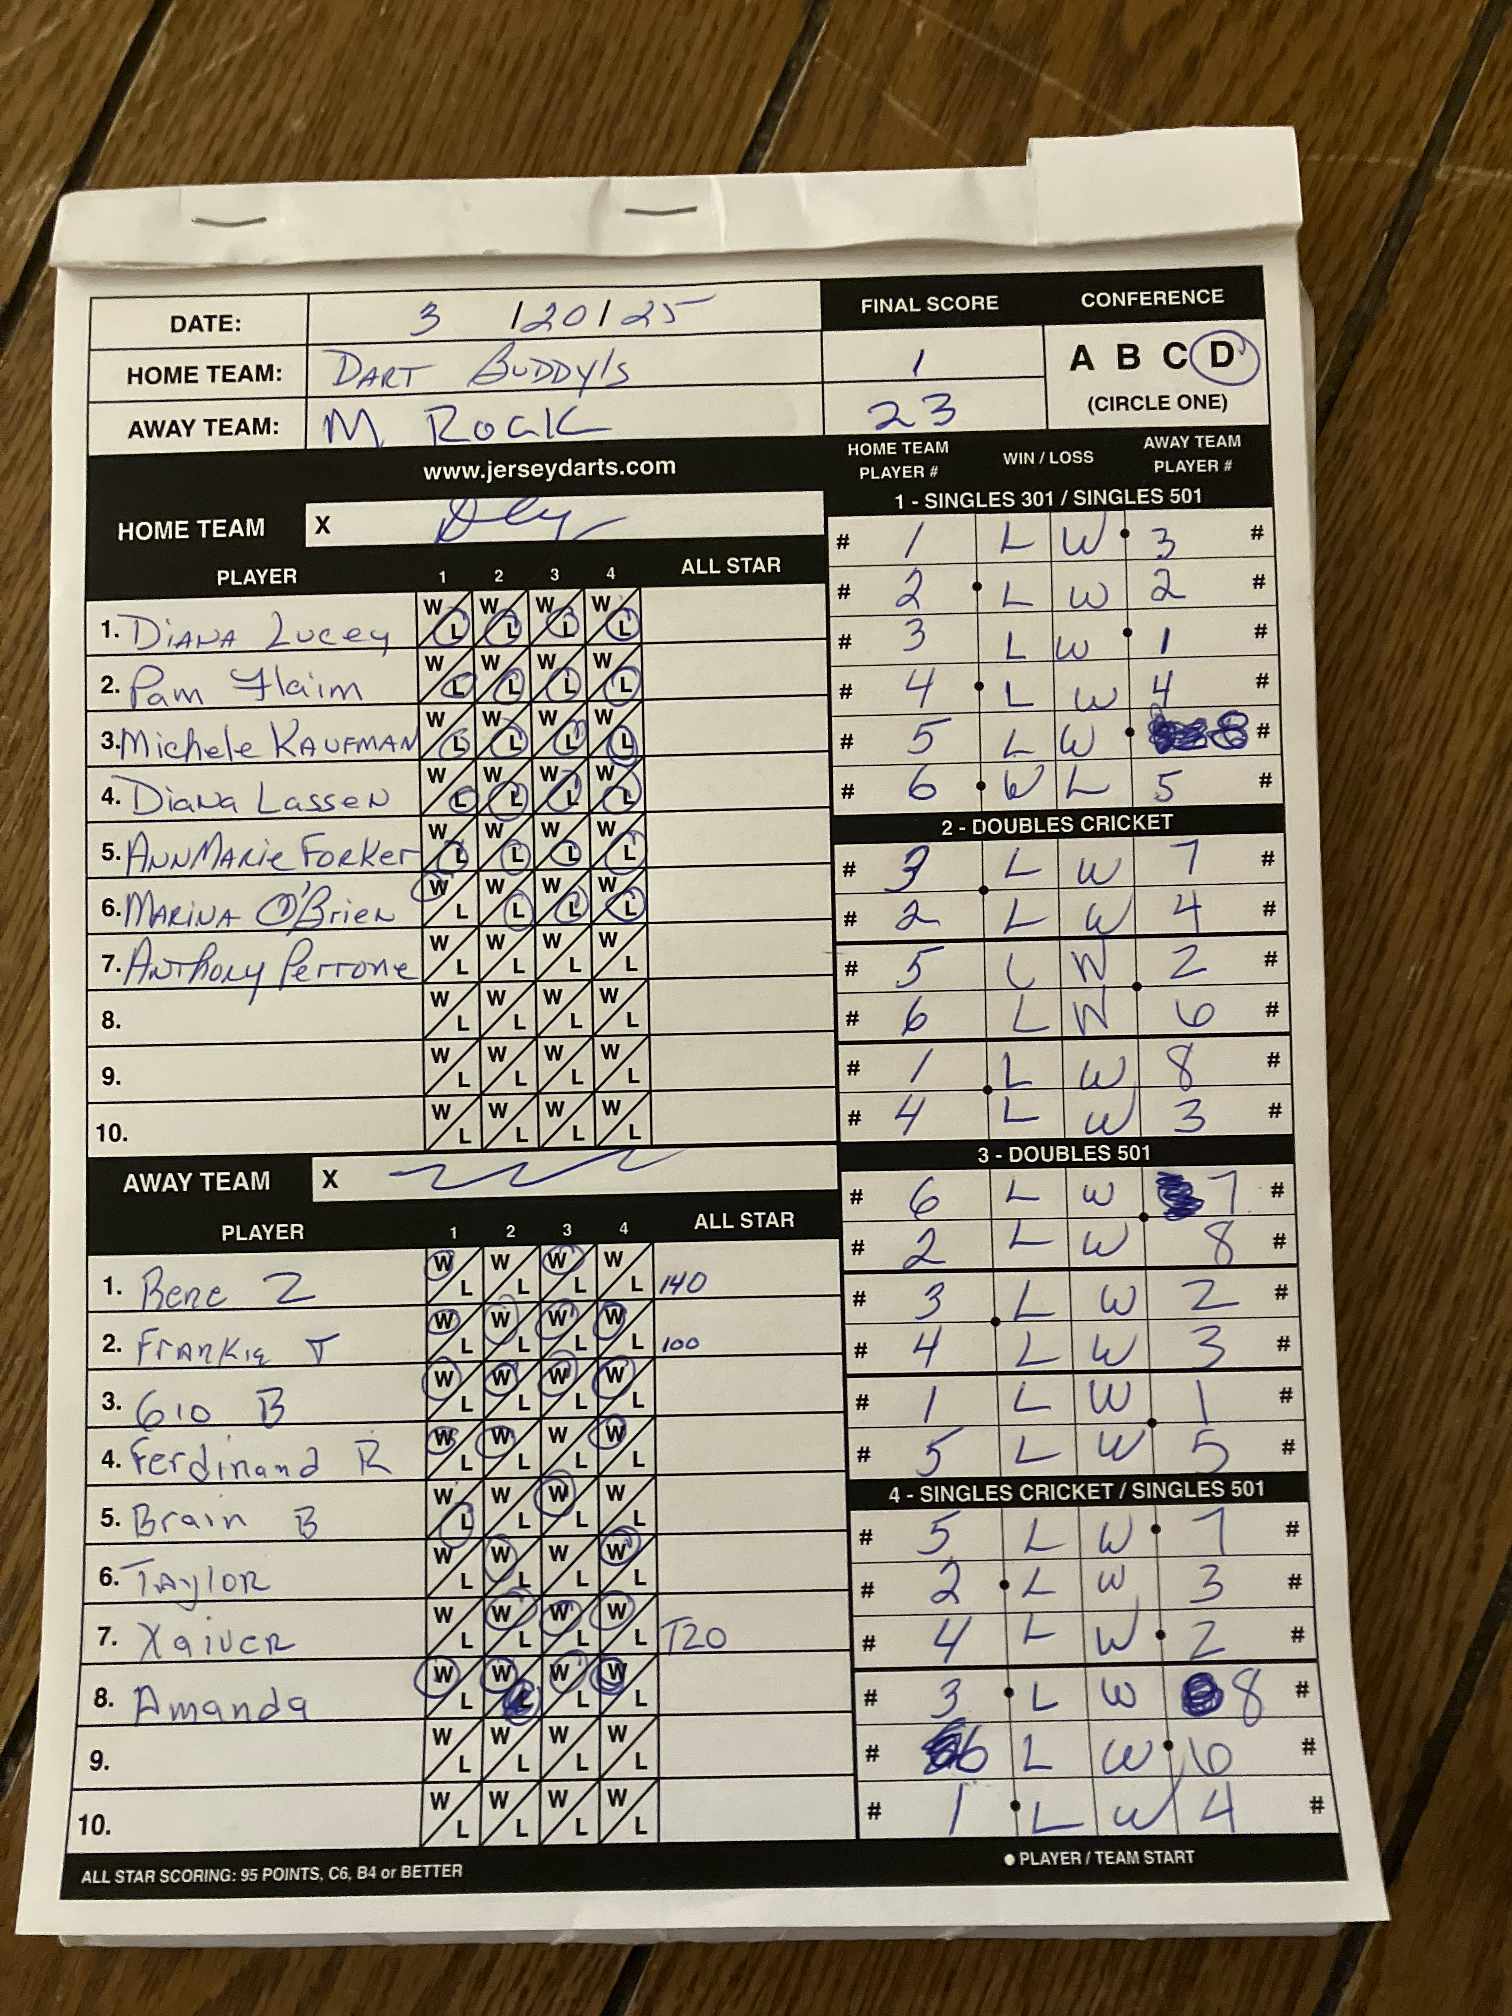 DATE: 3 /20/25
HOME TEAM: DART BUDDY'S
AWAY TEAM: M ROCK
FINAL SCORE
1
23
CONFERENCE
A B C D
(CIRCLE ONE)
www.jerseydarts.com
HOME TEAM X
PLAYER 1 2 3 4 ALL STAR
1. DIANA LUCEY W L W L W L W L
2. Pam Flaim W L W L W L W L
3. Michele KAUFMAN W L W L W L W L
4. Diana Lassen W L W L W L W L
5. ANNMARIE FORKER W L W L W L W L
6. MARINA O'BRIEN W L W L W L W L
7. ANTHONY PERRONE W L W L W L W L
8. W L W L W L W L
9. W L W L W L W L
10. W L W L W L W L
AWAY TEAM X
PLAYER 1 2 3 4 ALL STAR
1. Rene Z W L W L W L W L 140
2. FrAnKie T W L W L W L W L 100
3. GIO B W L W L W L W L
4. Ferdinand R W L W L W L W L
5. Brain B W L W L W L W L
6. TAYLOR W L W L W L W L
7. Xaiver W L W L W L W L T20
8. Amanda W L W L W L W L
9. W L W L W L W L
10. W L W L W L W L
ALL STAR SCORING: 95 POINTS, C6, B4 or BETTER
HOME TEAM PLAYER # WIN / LOSS AWAY TEAM PLAYER #
1 - SINGLES 301 / SINGLES 501
# 1 L W 3 #
# 2 L W 2 #
# 3 L W 1 #
# 4 L W 4 #
# 5 L W 8 #
# 6 W L 5 #
2 - DOUBLES CRICKET
# 3 L W 7 #
# 2 L W 4 #
# 5 L W 2 #
# 6 L W 6 #
# 1 L W 8 #
# 4 L W 3 #
3 - DOUBLES 501
# 6 L W 7 #
# 2 L W 8 #
# 3 L W 2 #
# 4 L W 3 #
# 1 L W 1 #
# 5 L W 5 #
4 - SINGLES CRICKET / SINGLES 501
# 5 L W 7 #
# 2 L W 3 #
# 4 L W 2 #
# 3 L W 8 #
# 6 L W 6 #
# 1 L W 4 #
PLAYER / TEAM START